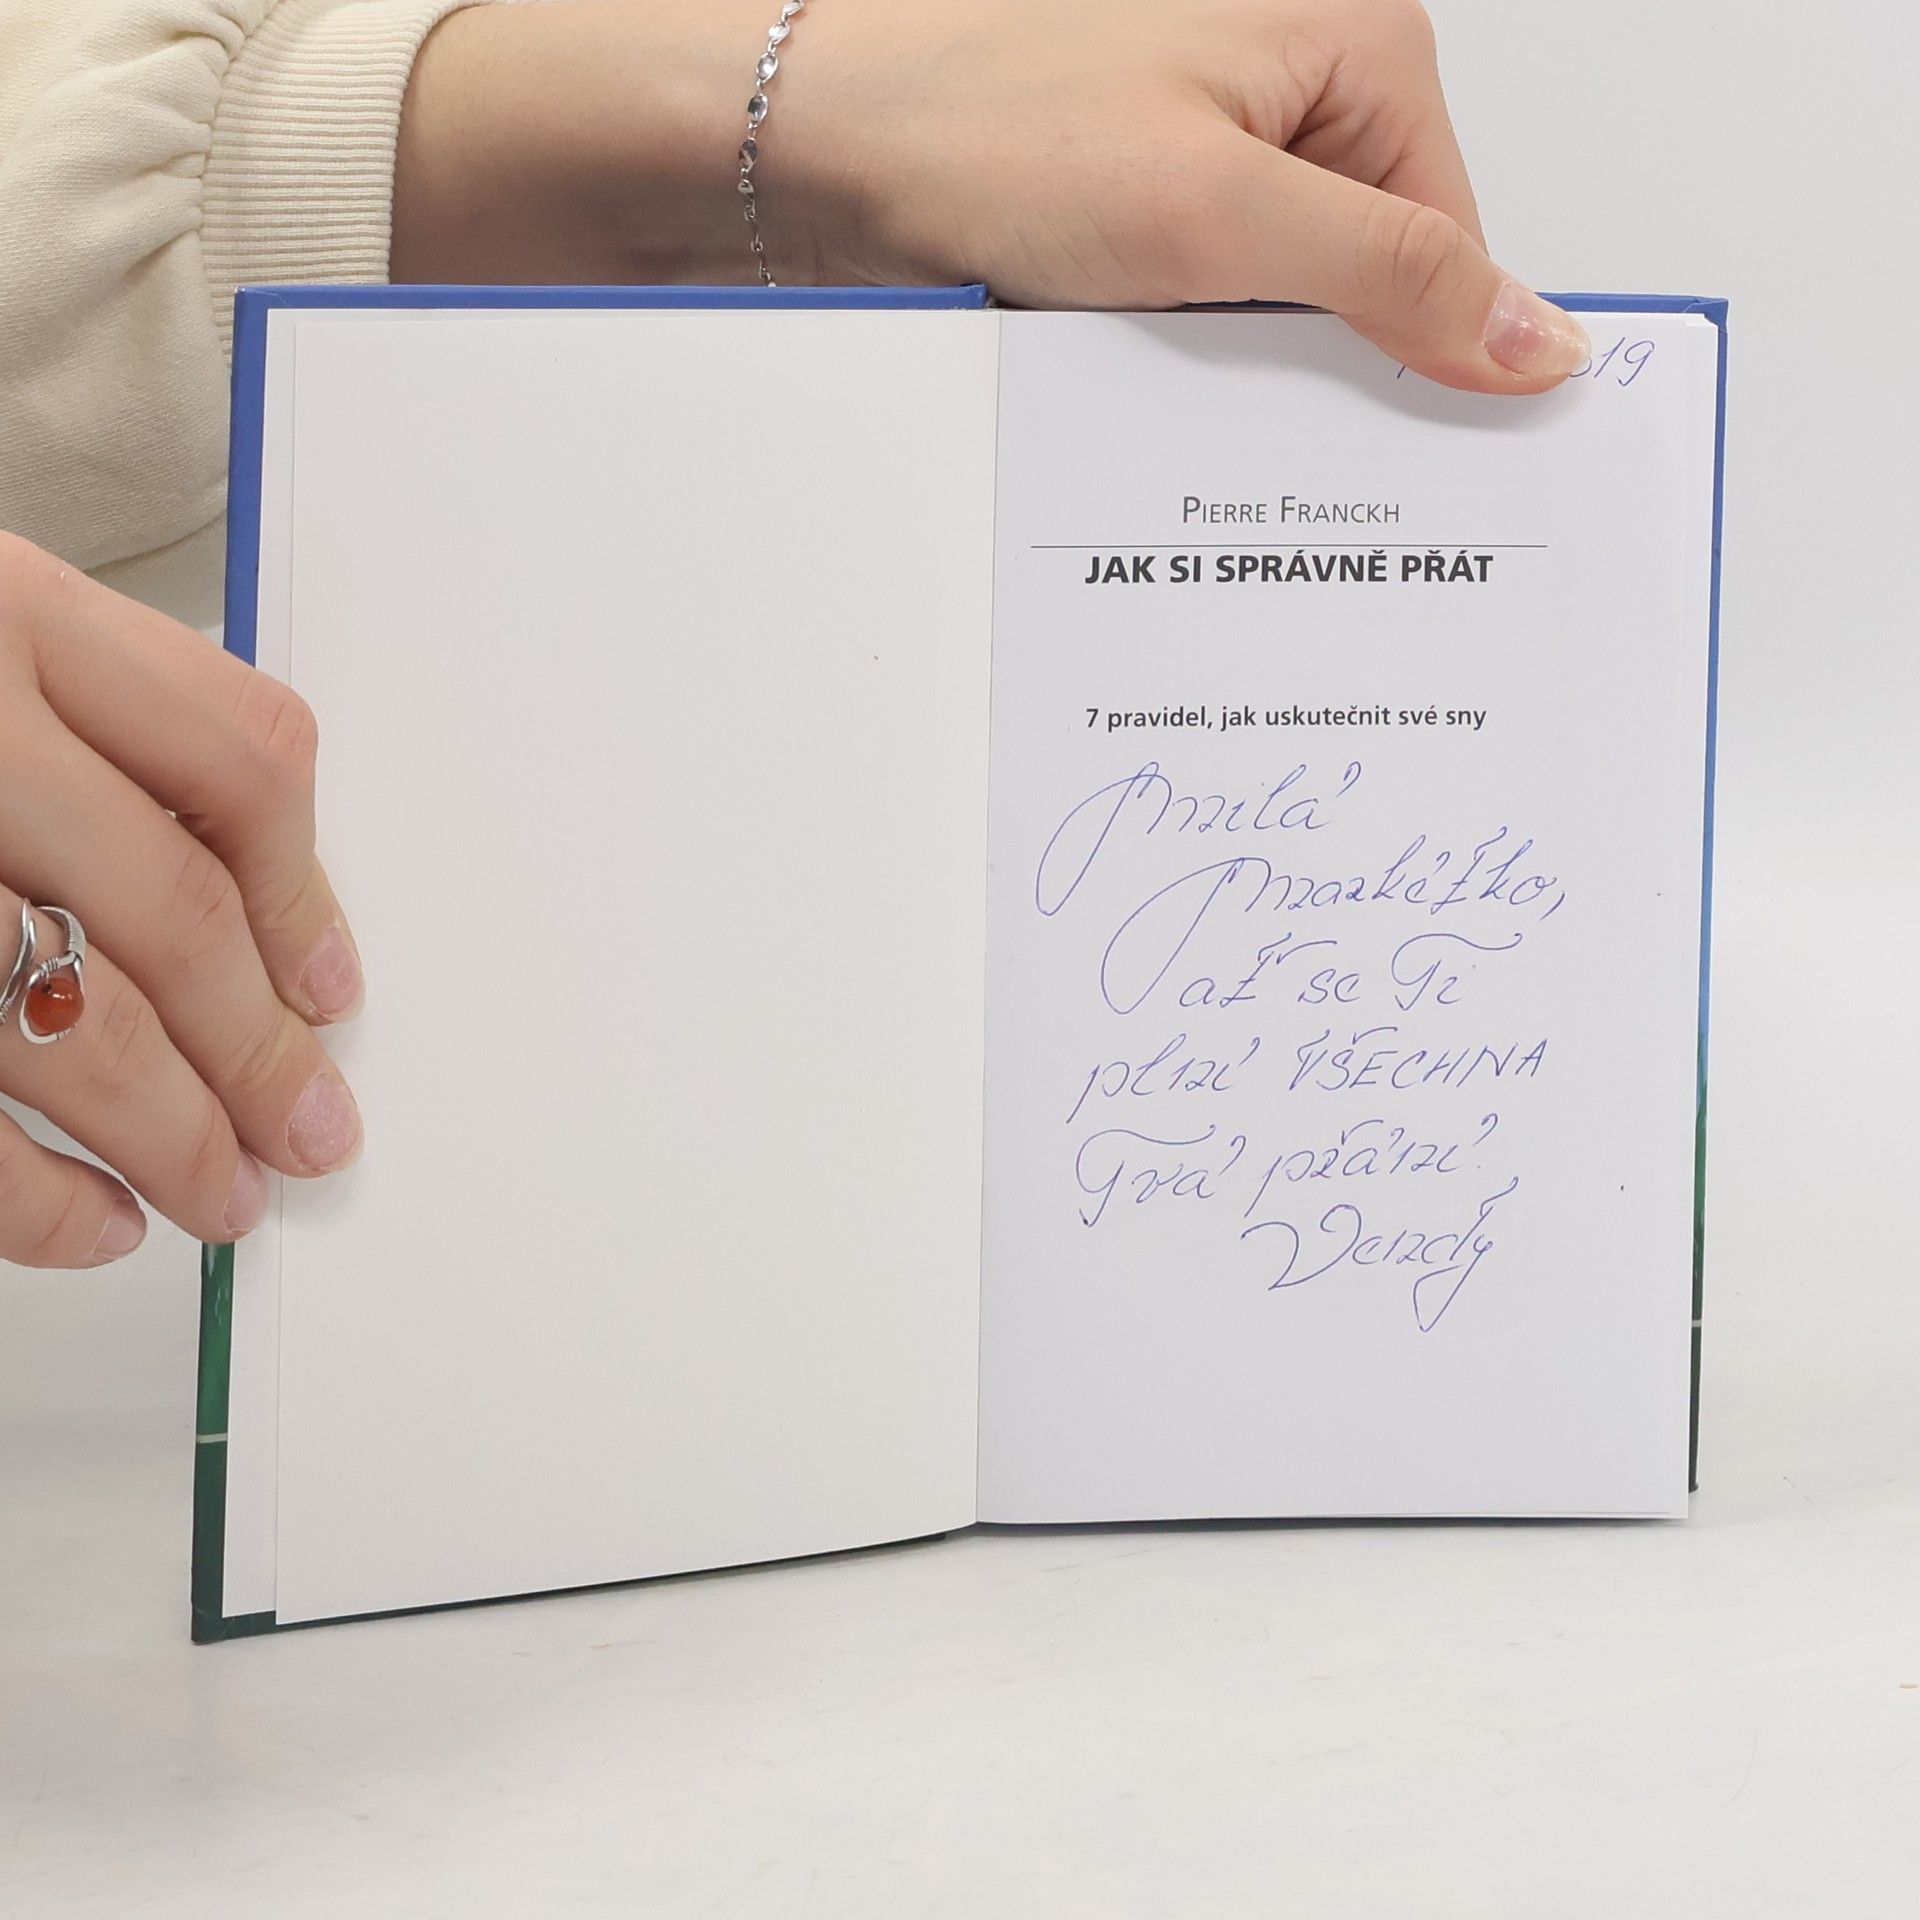 19
PIERRE FRANCKH
JAK SI SPRÁVNĚ PŘÁT
7 pravidel, jak uskutečnit své sny
Milá
Markétko,
ať se Ti
plní VŠECHNA
Tvá přání.
Vendy